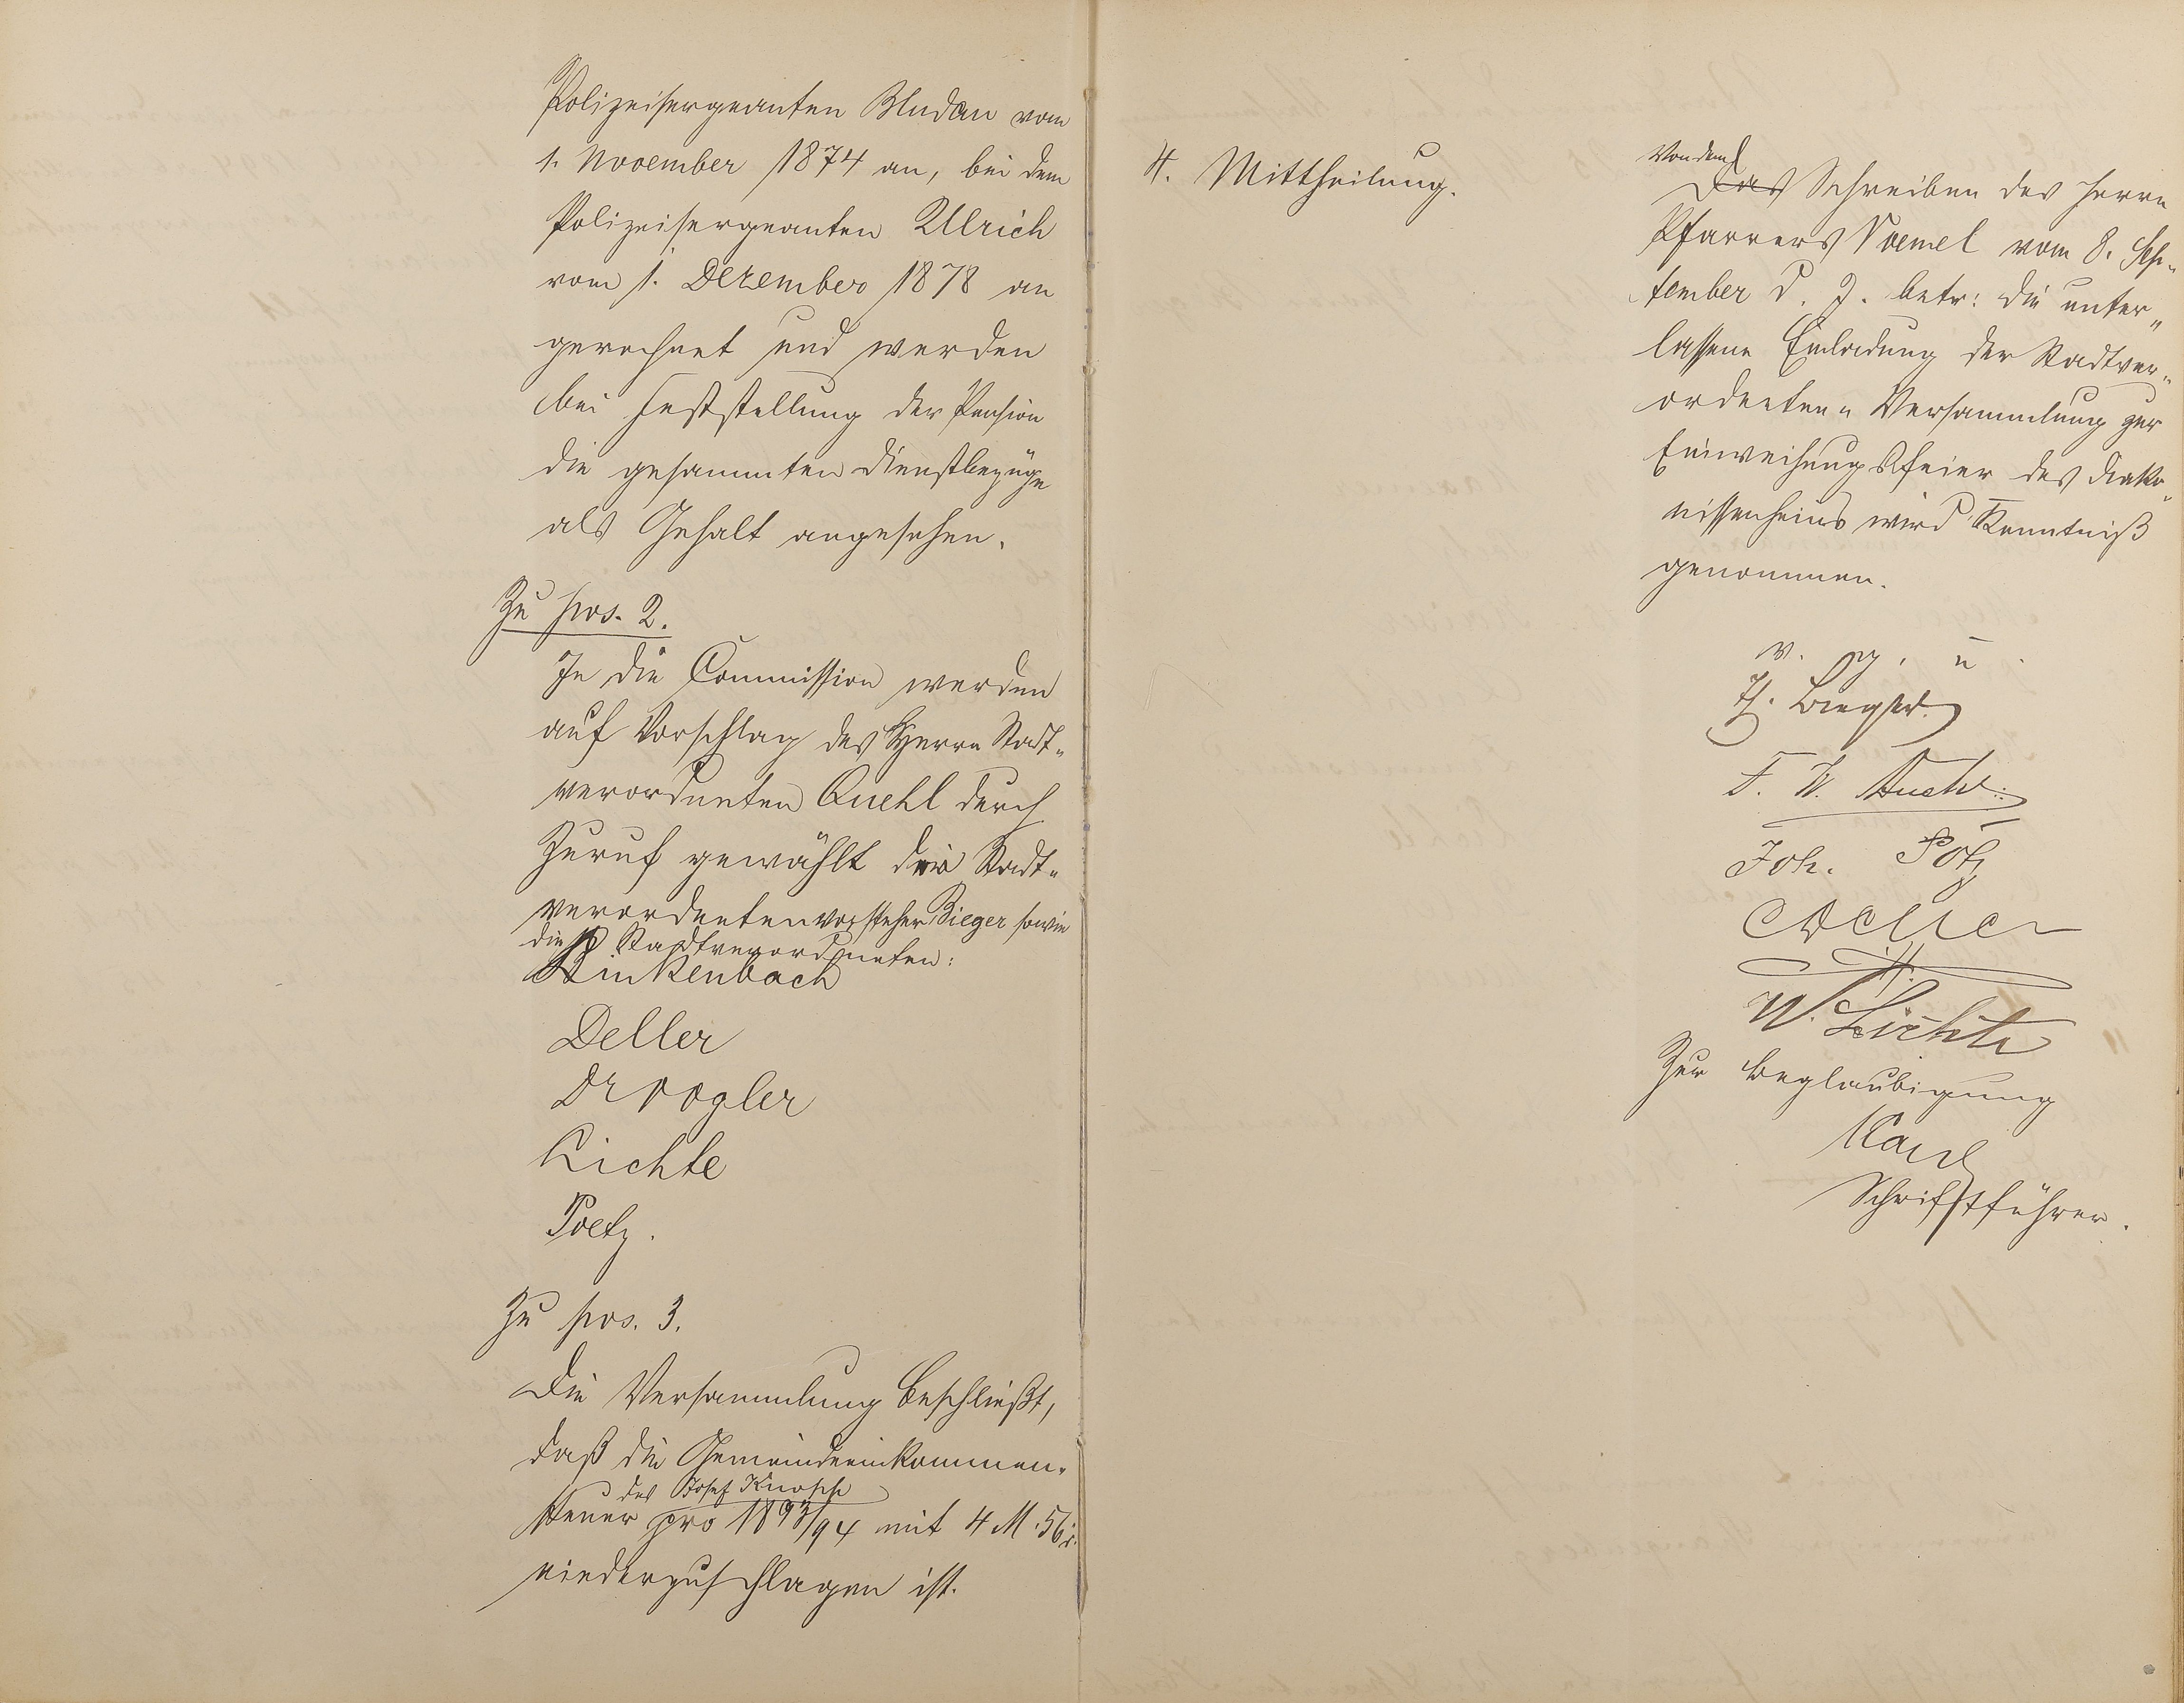 Polizeisergeanten Bludau vom
1. November 1874 an, bei dem
Polizeisergeanten Ullrich
vom 1. Dezember 1878 an
gerechnet und werden
bei Feststellung der Pension
die gesammten Dienstbezüge
als Gehalt angesehen.
Zu pos. 2.
In die Commission werden
auf Vorschlag des Herrn Stadt-
verordneten Quehl durch
Zuruf gewählt die Stadt-
verordnetenvorsteher Bieger sowie
die Stadtverordneten:
Rinkenbach
Deller
Dr Vogler
Lichte
Poetz.
Zu pos. 3.
Die Versammlung beschließt,
daß die Gemeindeeinkommen-
des Josef Knopp
steuer pro 1893/94 mit 4 M. 56
niederzuschlagen ist.
4. Mittheilung.
Von dem
Das Schreiben des Herrn
Pfarrers Voemel vom 8. Sep-
tember d. J. betr: die unter-
lassene Einladung der Stadtver-
ordneten-Versammlung zur
Einweihungsfeier des Diako-
nissenheims wird Kenntniß
genommen.
v. g. u.
Th. Bieger.
F. W.
Joh. Pötz
Deller
W. Lichte
Zur Beglaubigung
Schriftführer.